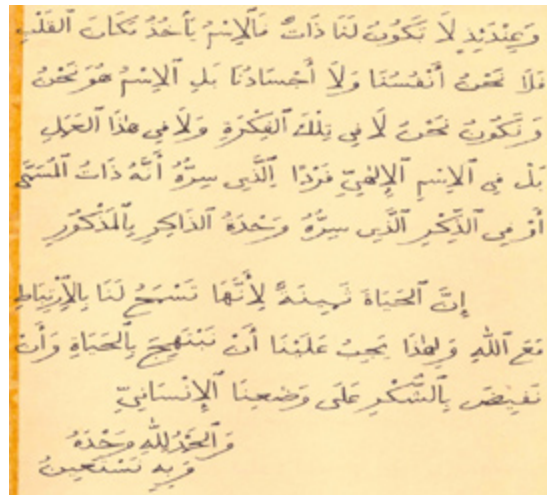 وَعِنْدَئِذٍ لَا تَكُونُ لَنَا ذَاتٌ فَالْإِسْمُ يَأْخُذُ مَكَانَ ٱلْقَلْبِ
فَلَا نَحْنُ أَنْفُسُنَا وَلَا أَجْسَادُنَا بَلِ ٱلْإِسْمُ هُوَ نَحْنُ
وَنَكُونُ نَحْنُ لَا فِي تِلْكَ ٱلْفِكْرَةِ وَلَا فِي هٰذَا ٱلْعَمَلِ
بَلْ فِي ٱلْإِسْمِ ٱلْإِلٰهِيِّ فَرْدًا ٱلَّذِي سِرُّهُ أَنَّهُ ذَاتُ ٱلْمُسَمَّى
أَوْ فِي ٱلذِّكْرِ ٱلَّذِي سِرُّهُ وَحْدَةُ ٱلذَّاكِرِ بِٱلْمَذْكُورِ
إِنَّ ٱلْحَيَاةَ ثَمِينَةٌ لِأَنَّهَا تَسْمَحُ لَنَا بِٱلْإِرْتِبَاطِ
مَعَ ٱللّٰهِ وَلِهٰذَا يَجِبُ عَلَيْنَا أَنْ نَبْتَهِجَ بِٱلْحَيَاةِ وَأَنْ
نَفِيضَ بِٱلشُّكْرِ عَلَى وَضْعِنَا ٱلْإِنْسَانِيِّ
وَٱلْحَمْدُ لِلّٰهِ وَحْدَهُ
وَبِهِ نَسْتَعِينُ